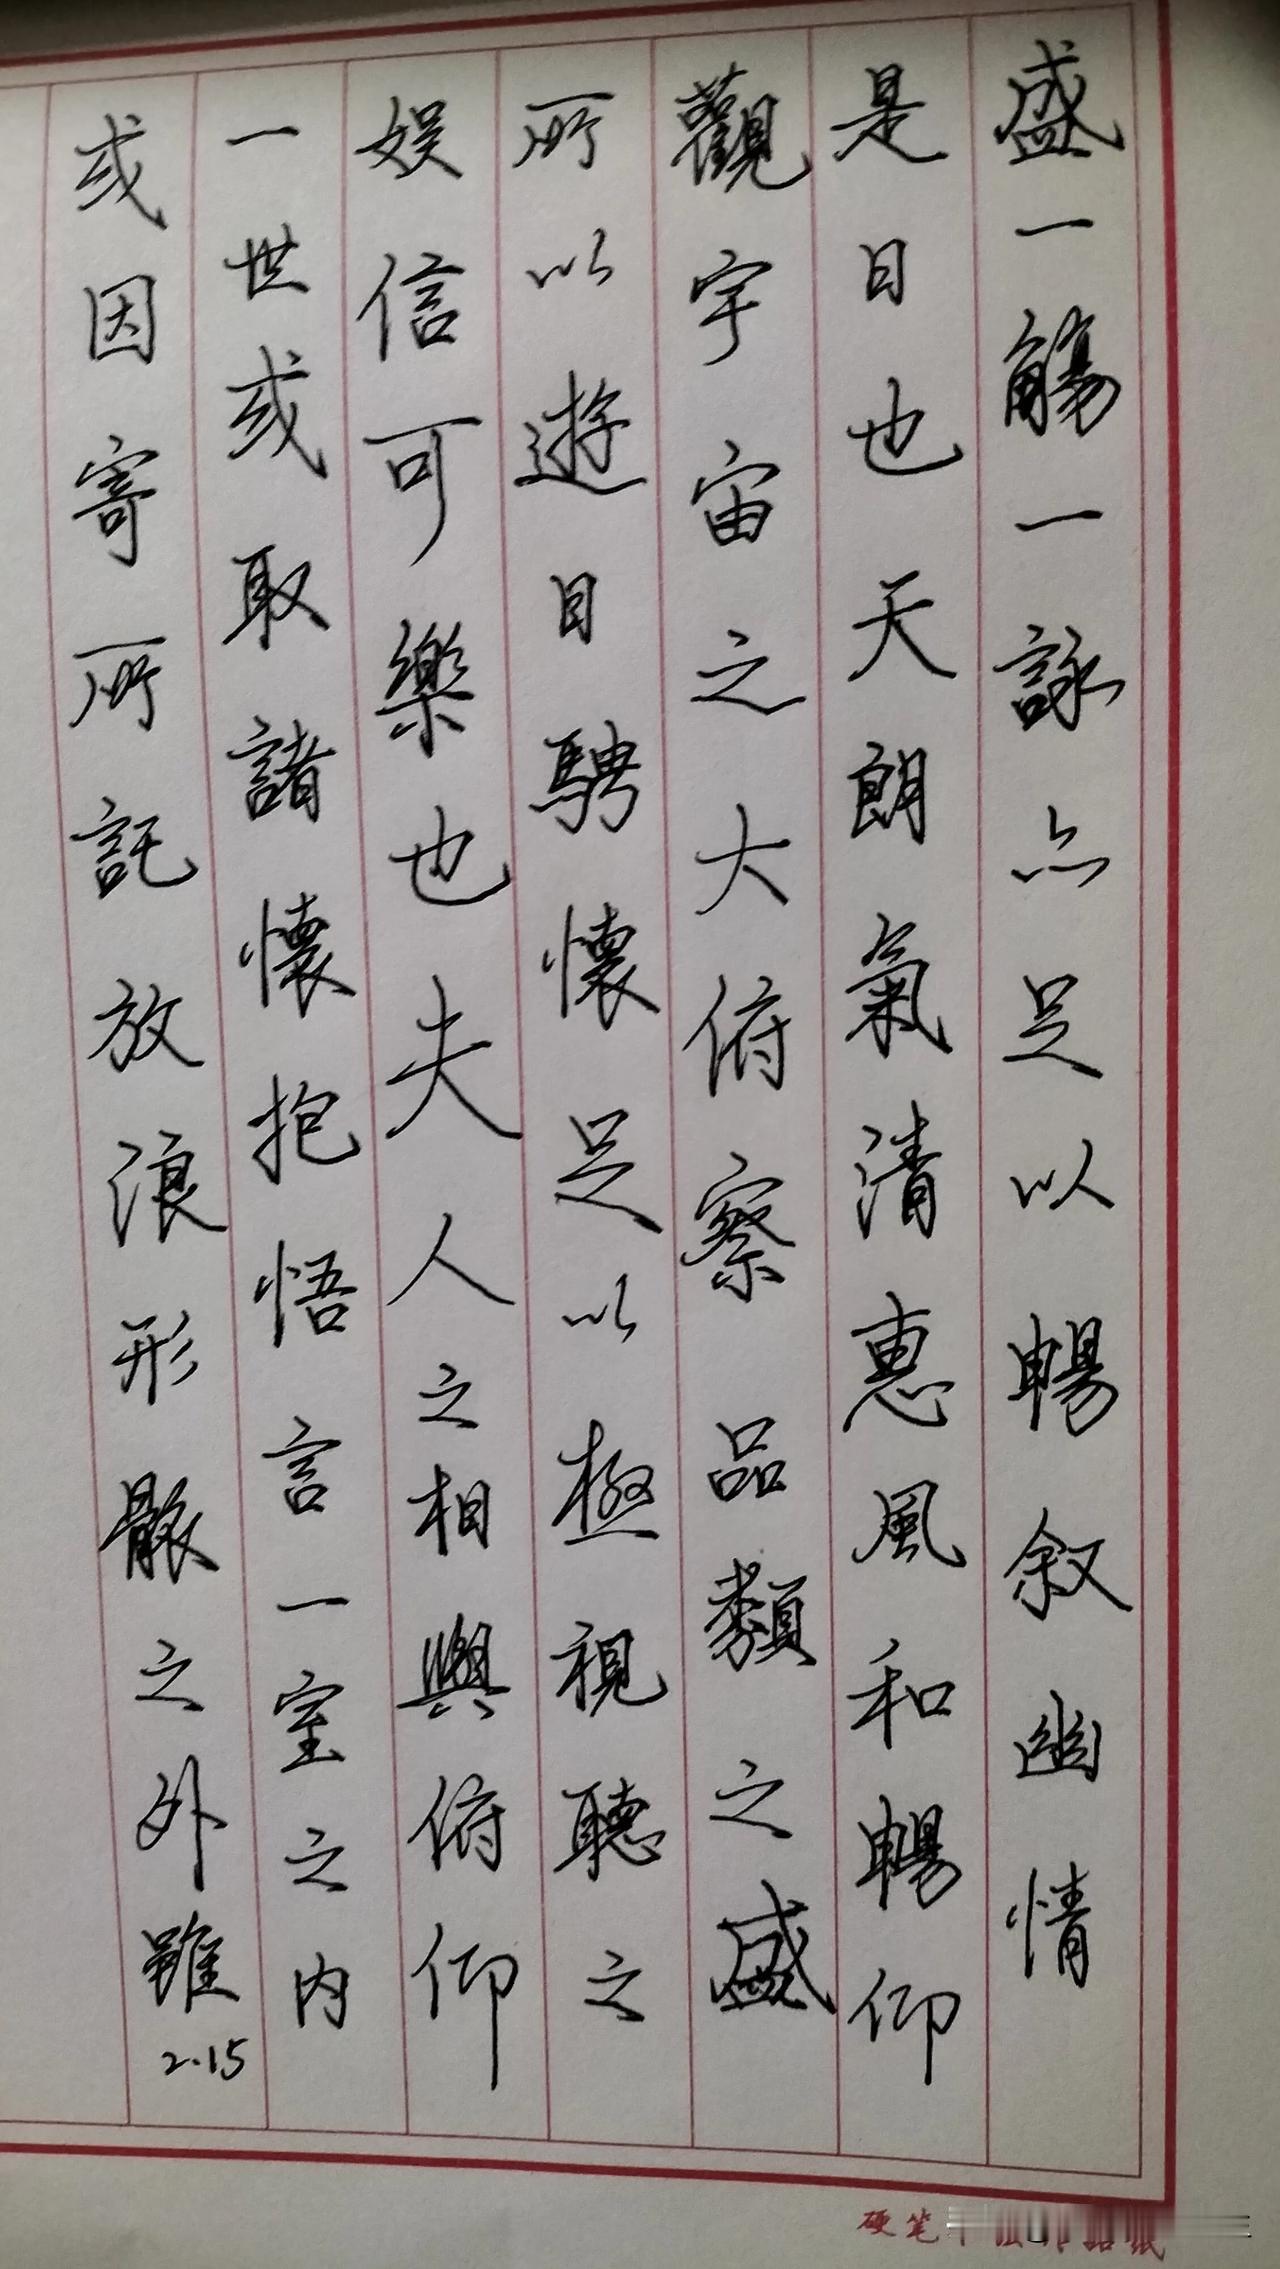 盛一觴一詠亦足以暢叙幽情
是日也天朗氣清惠風和暢仰
觀宇宙之大俯察品類之盛
所以遊目騁懷足以極視聽之
娱信可樂也夫人之相與俯仰
一世或取諸懷抱悟言一室之内
或因寄所託放浪形骸之外雖
2.15
硬笔